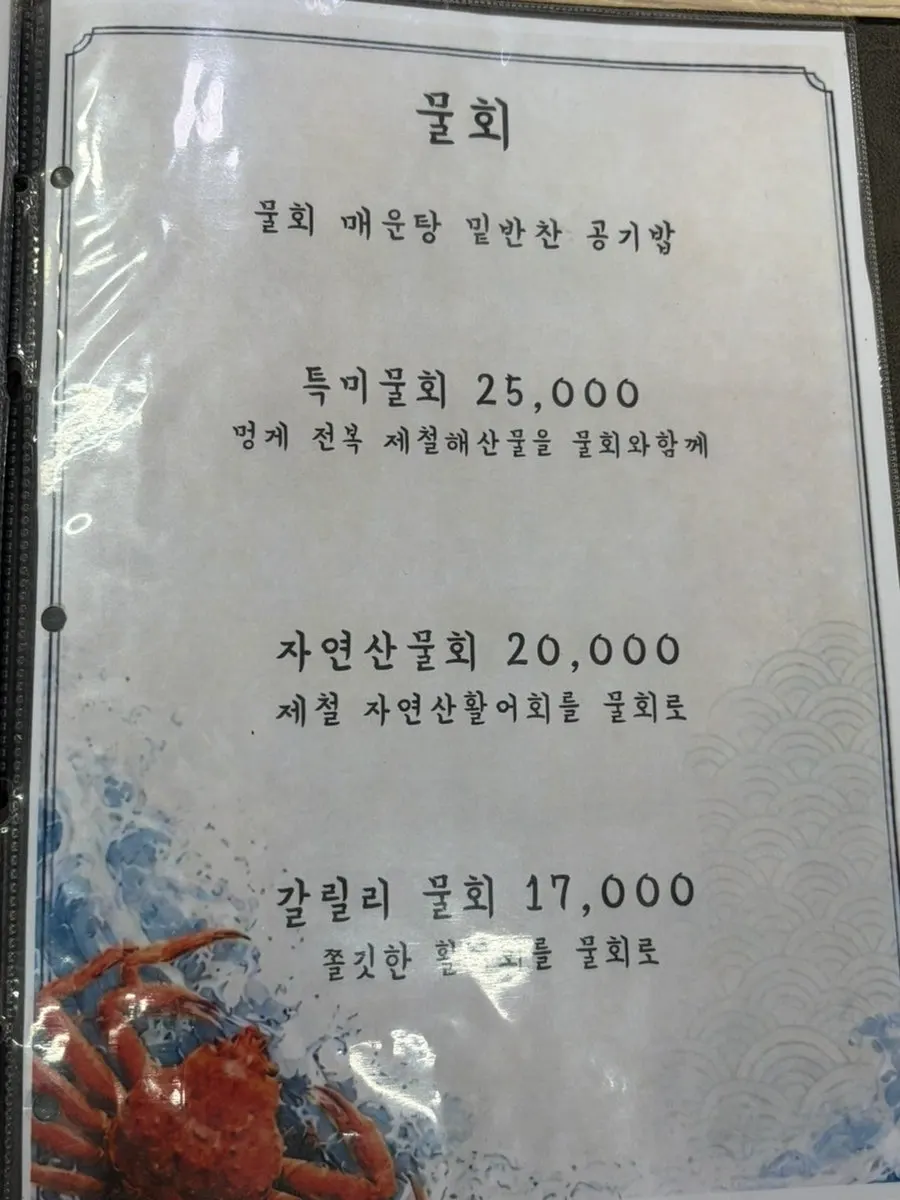 물회
물회 매운탕 밑반찬 공기밥
특미물회 25,000
멍게 전복 제철해산물을 물회와함께
자연산물회 20,000
제철 자연산활어회를 물회로
갈릴리 물회 17,000
쫄깃한 물회로